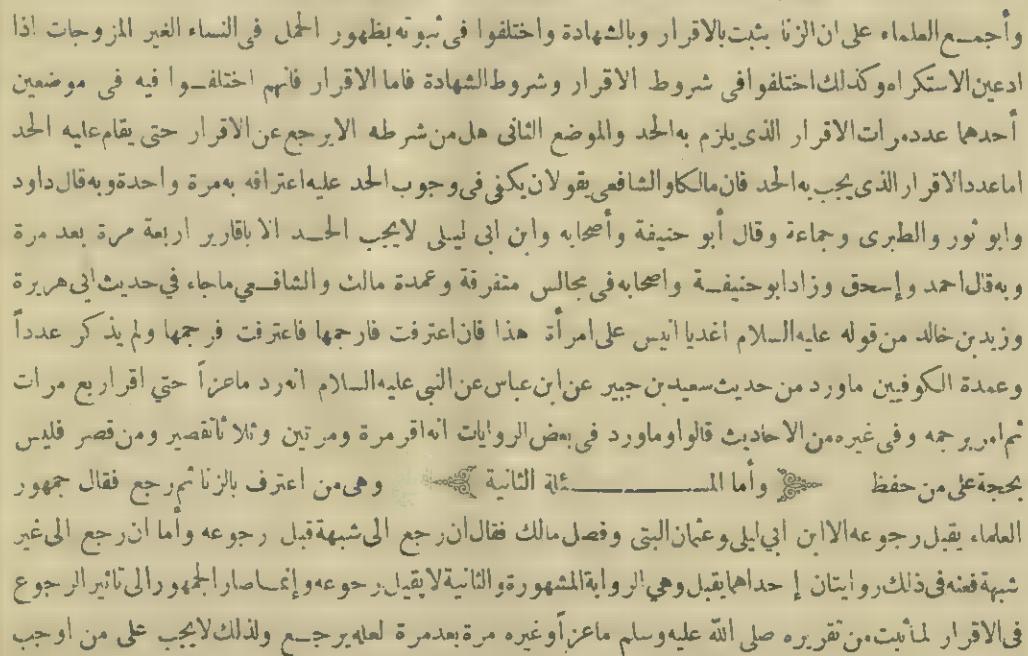 وأجمع العلماء على ان الزنا يثبت بالاقرار وبالشهادة واختلفوا في ثبوته بظهور الحمل في النساء الغير المزوجات اذا
ادعين الاستكراه وكذلك اختلفوا في شروط الاقرار وشروط الشهادة فاما الاقرار فانهم اختلفوا فيه في موضعين
أحدهما عدد مرات الاقرار الذي يلزم به الحد والموضع الثاني هل من شرطه الا يرجع عن الاقرار حتى يقام عليه الحد
اما عدد الاقرار الذي يجب به الحد فان مالكا والشافعي يقولان يكفي في وجوب الحد عليه اعترافه به مرة واحدة وبه قال داود
وابو ثور والطبرى وجماعة وقال أبو حنيفة وأصحابه وابن ابي ليلى لا يجب الحد الا باقارير اربعة مرة بعد مرة
وبه قال احمد وإسحق وزاد ابو حنيفة واصحابه في مجالس متفرقة وعمدة مالك والشافعي ماجاء في حديث ابي هريرة
وزيد بن خالد من قوله عليه السلام اغد يا انيس على امرأة هذا فان اعترفت فارجمها فاعترفت فرجمها ولم يذكر عدداً
وعمدة الكوفيين ماورد من حديث سعيد بن جبير عن ابن عباس عن النبي عليه السلام انه رد ماعزاً حتي اقر اربع مرات
ثم امر برجمه وفي غيره من الاحاديث قالوا وماورد في بعض الروايات انه اقر مرة ومرتين وثلاثا تقصير ومن قصر فليس
بحجة على من حفظ وأما المسئلة الثانية وهي من اعترف بالزنا ثم رجع فقال جمهور
العلماء يقبل رجوعه الا ابن ابي ليلى وعثمان البتى وفصل مالك فقال ان رجع الى شبهة قبل رجوعه وأما ان رجع الى غير
شبهة فعنه في ذلك روايتان إحداهما يقبل وهي الرواية المشهورة والثانية لا يقبل رجوعه وإنما صار الجمهور الى تاثير الرجوع
في الاقرار لما ثبت من تقريره صلى الله عليه وسلم ماعزاً وغيره مرة بعد مرة لعله يرجع ولذلك لا يجب على من اوجب